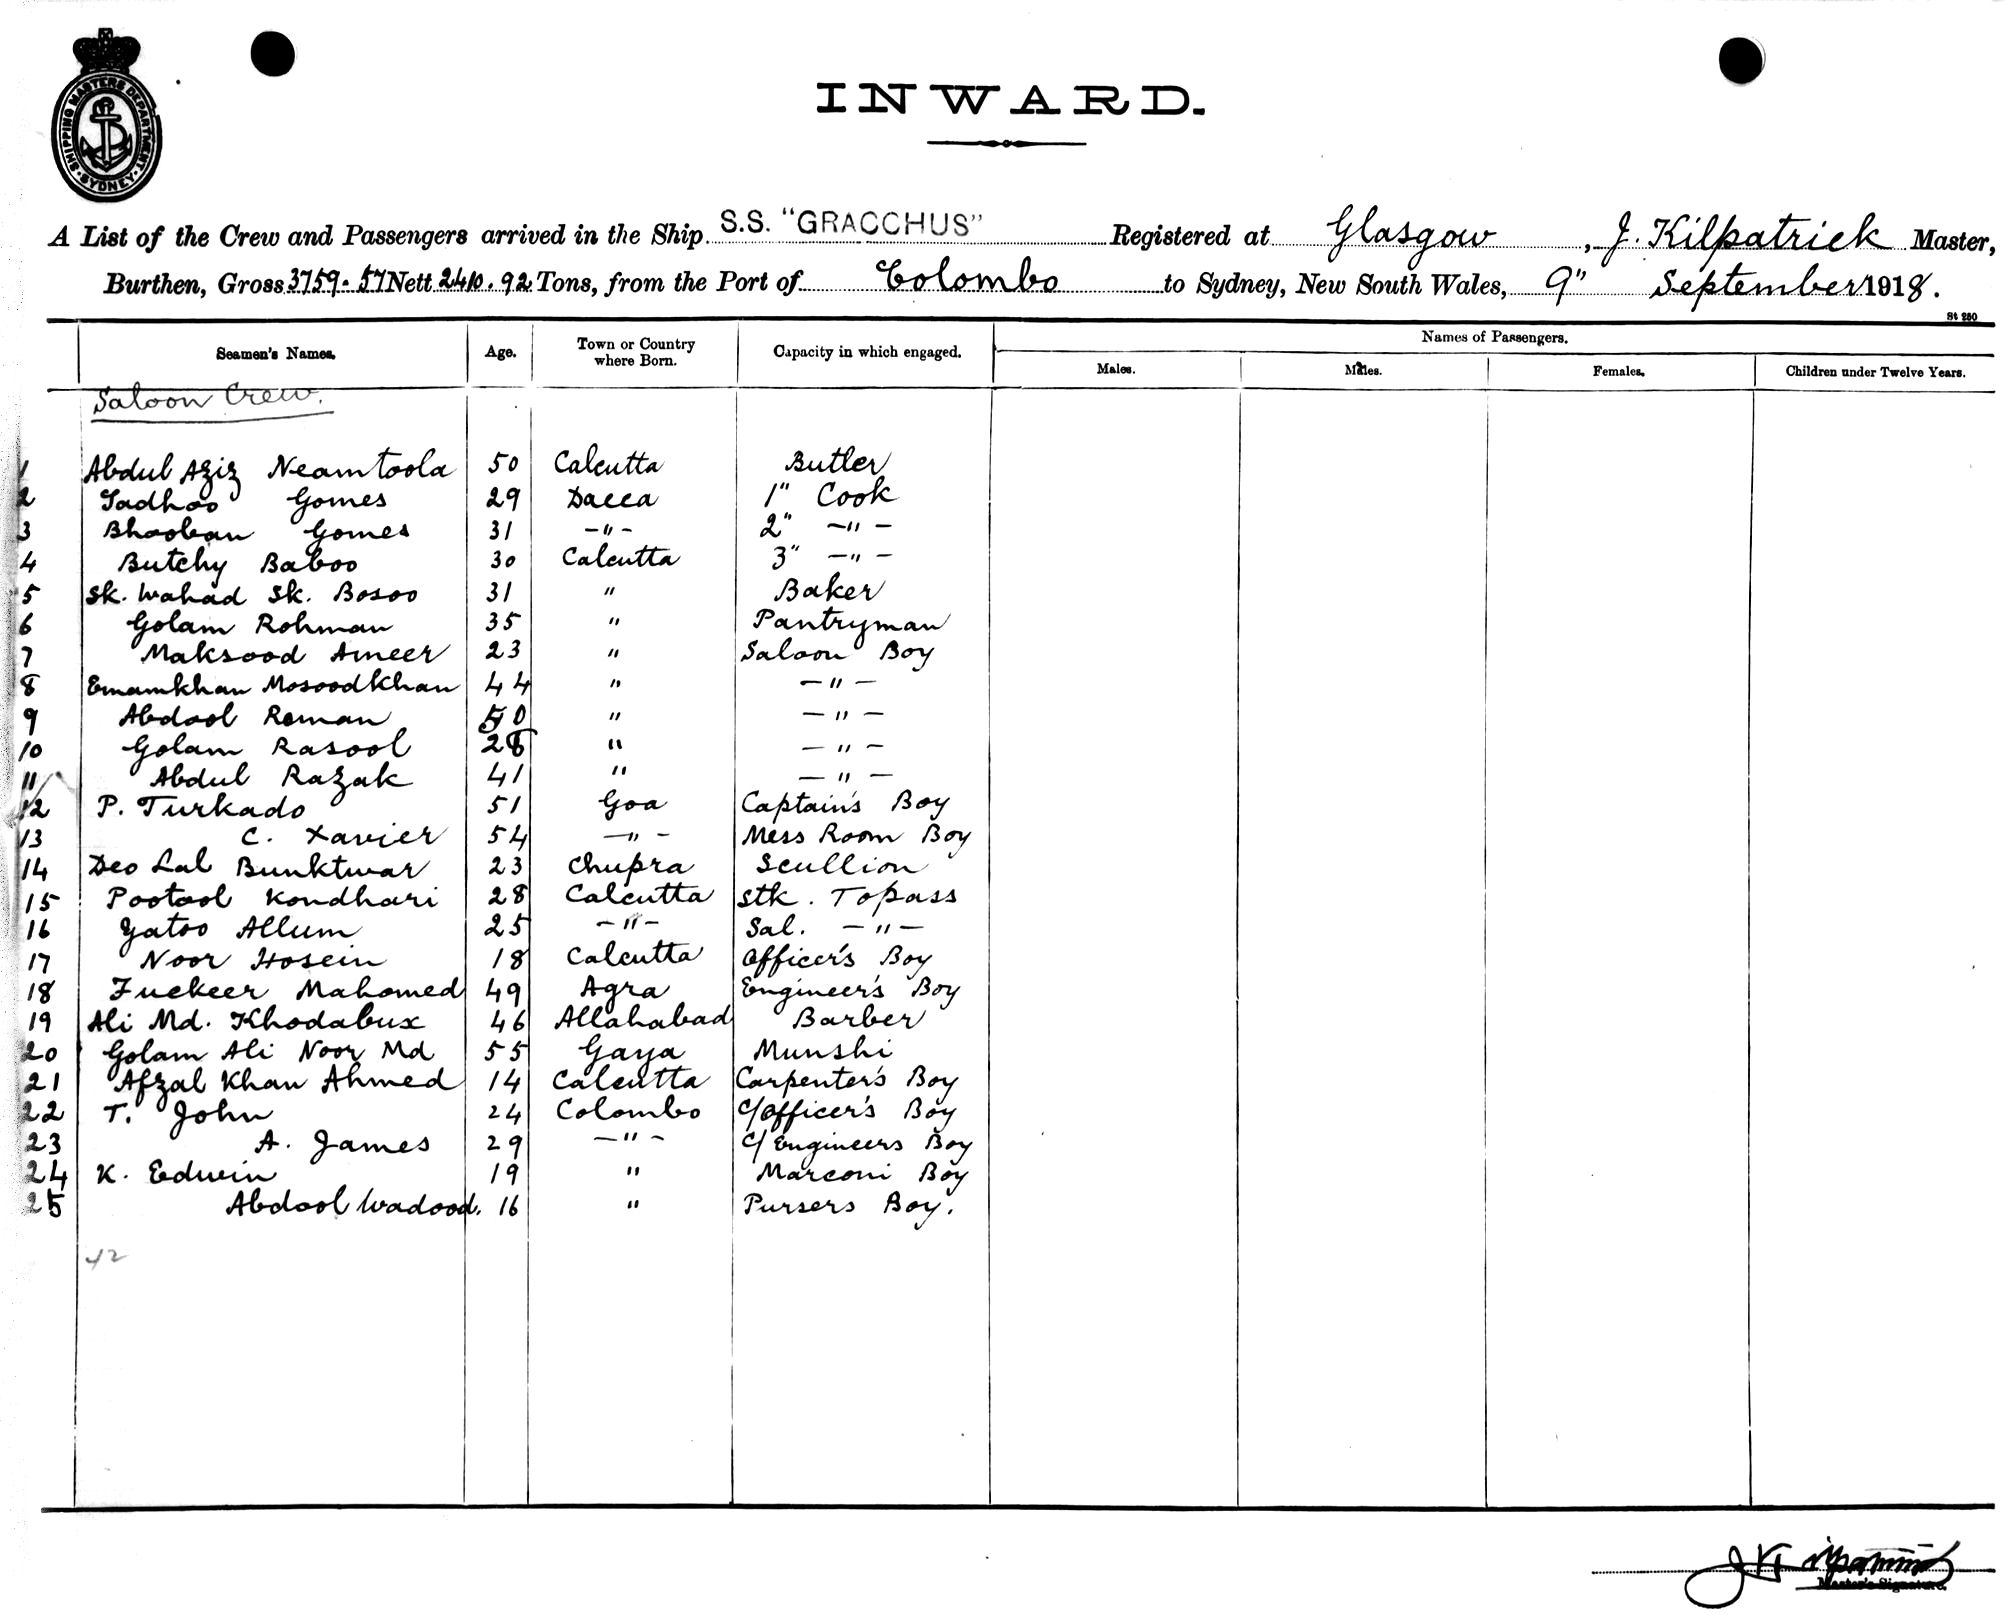 SHIPPING MASTERS DEPARTMENT
SYDNEY
INWARD.
A List of the Crew and Passengers arrived in the Ship S.S. "GRACCHUS" Registered at Glasgow, J. Kilpatrick Master,
Burthen, Gross 3759.57 Nett 2410.92 Tons, from the Port of Colombo to Sydney, New South Wales, 9" September 1918.
St 250
Seamen's Names. Age. Town or Country where Born. Capacity in which engaged. Names of Passengers.
Males. Males. Females. Children under Twelve Years.
Saloon Crew.
1 Abdul Aziz Neamtoola 50 Calcutta Butler
2 Sadhoo Gomes 29 Dacca 1" Cook
3 Bhooban Gomes 31 -"- 2" -"-
4 Butchy Baboo 30 Calcutta 3" -"-
5 Sk. Wahad Sk. Bosoo 31 " Baker
6 Golam Rohman 35 " Pantryman
7 Maksood Ameer 23 " Saloon Boy
8 Emamkhan Mosoodkhan 44 " -"-
9 Abdool Roman 50 " -"-
10 Golam Rasool 28 " -"-
11 Abdul Razak 41 " -"-
12 P. Turkado 51 Goa Captain's Boy
13 C. Xavier 54 -"- Mess Room Boy
14 Deo Lal Bunktwar 23 Chupra Scullion
15 Pootool Kondhari 28 Calcutta Stk. Topass
16 Yatoo Allum 25 -"- Sal. -"-
17 Noor Hosein 18 Calcutta Officer's Boy
18 Fuckeer Mahomed 49 Agra Engineer's Boy
19 Ali Md. Khodabux 46 Allahabad Barber
20 Golam Ali Noor Md 55 Gaya Munshi
21 Afzal Khan Ahmed 14 Calcutta Carpenter's Boy
22 T. John 24 Colombo C/Officer's Boy
23 A. James 29 -"- C/Engineers Boy
24 K. Edwin 19 " Marconi Boy
25 Abdool Wadood. 16 " Pursers Boy.
42
J Kilpatrick
Master's Signature.